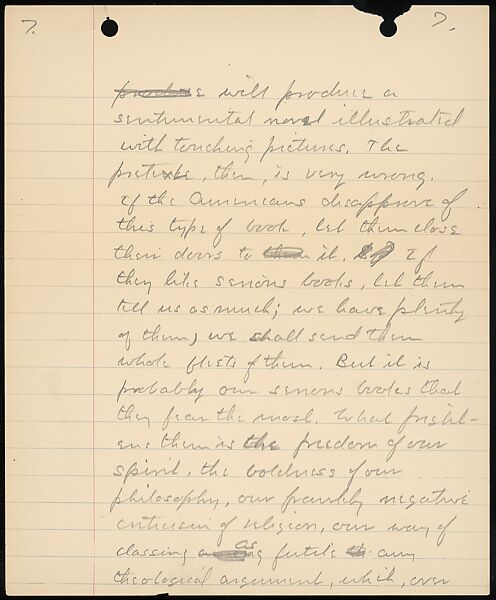 7. 7.
will produce a
sentimental novel illustrated
with touching pictures. The
pretexte, then, is very wrong.
If the Americans disapprove of
this type of book, let them close
their doors to it. If
they like serious books, let them
tell us as much; we have plenty
of them, we shall send them
whole fleets of them. But it is
probably our serious books that
they fear the most. What fright-
ens them is the freedom of our
spirit, the boldness of our
philosophy, our frankly negative
criticism of religion, our way of
classing as futile any
theological argument, which, over